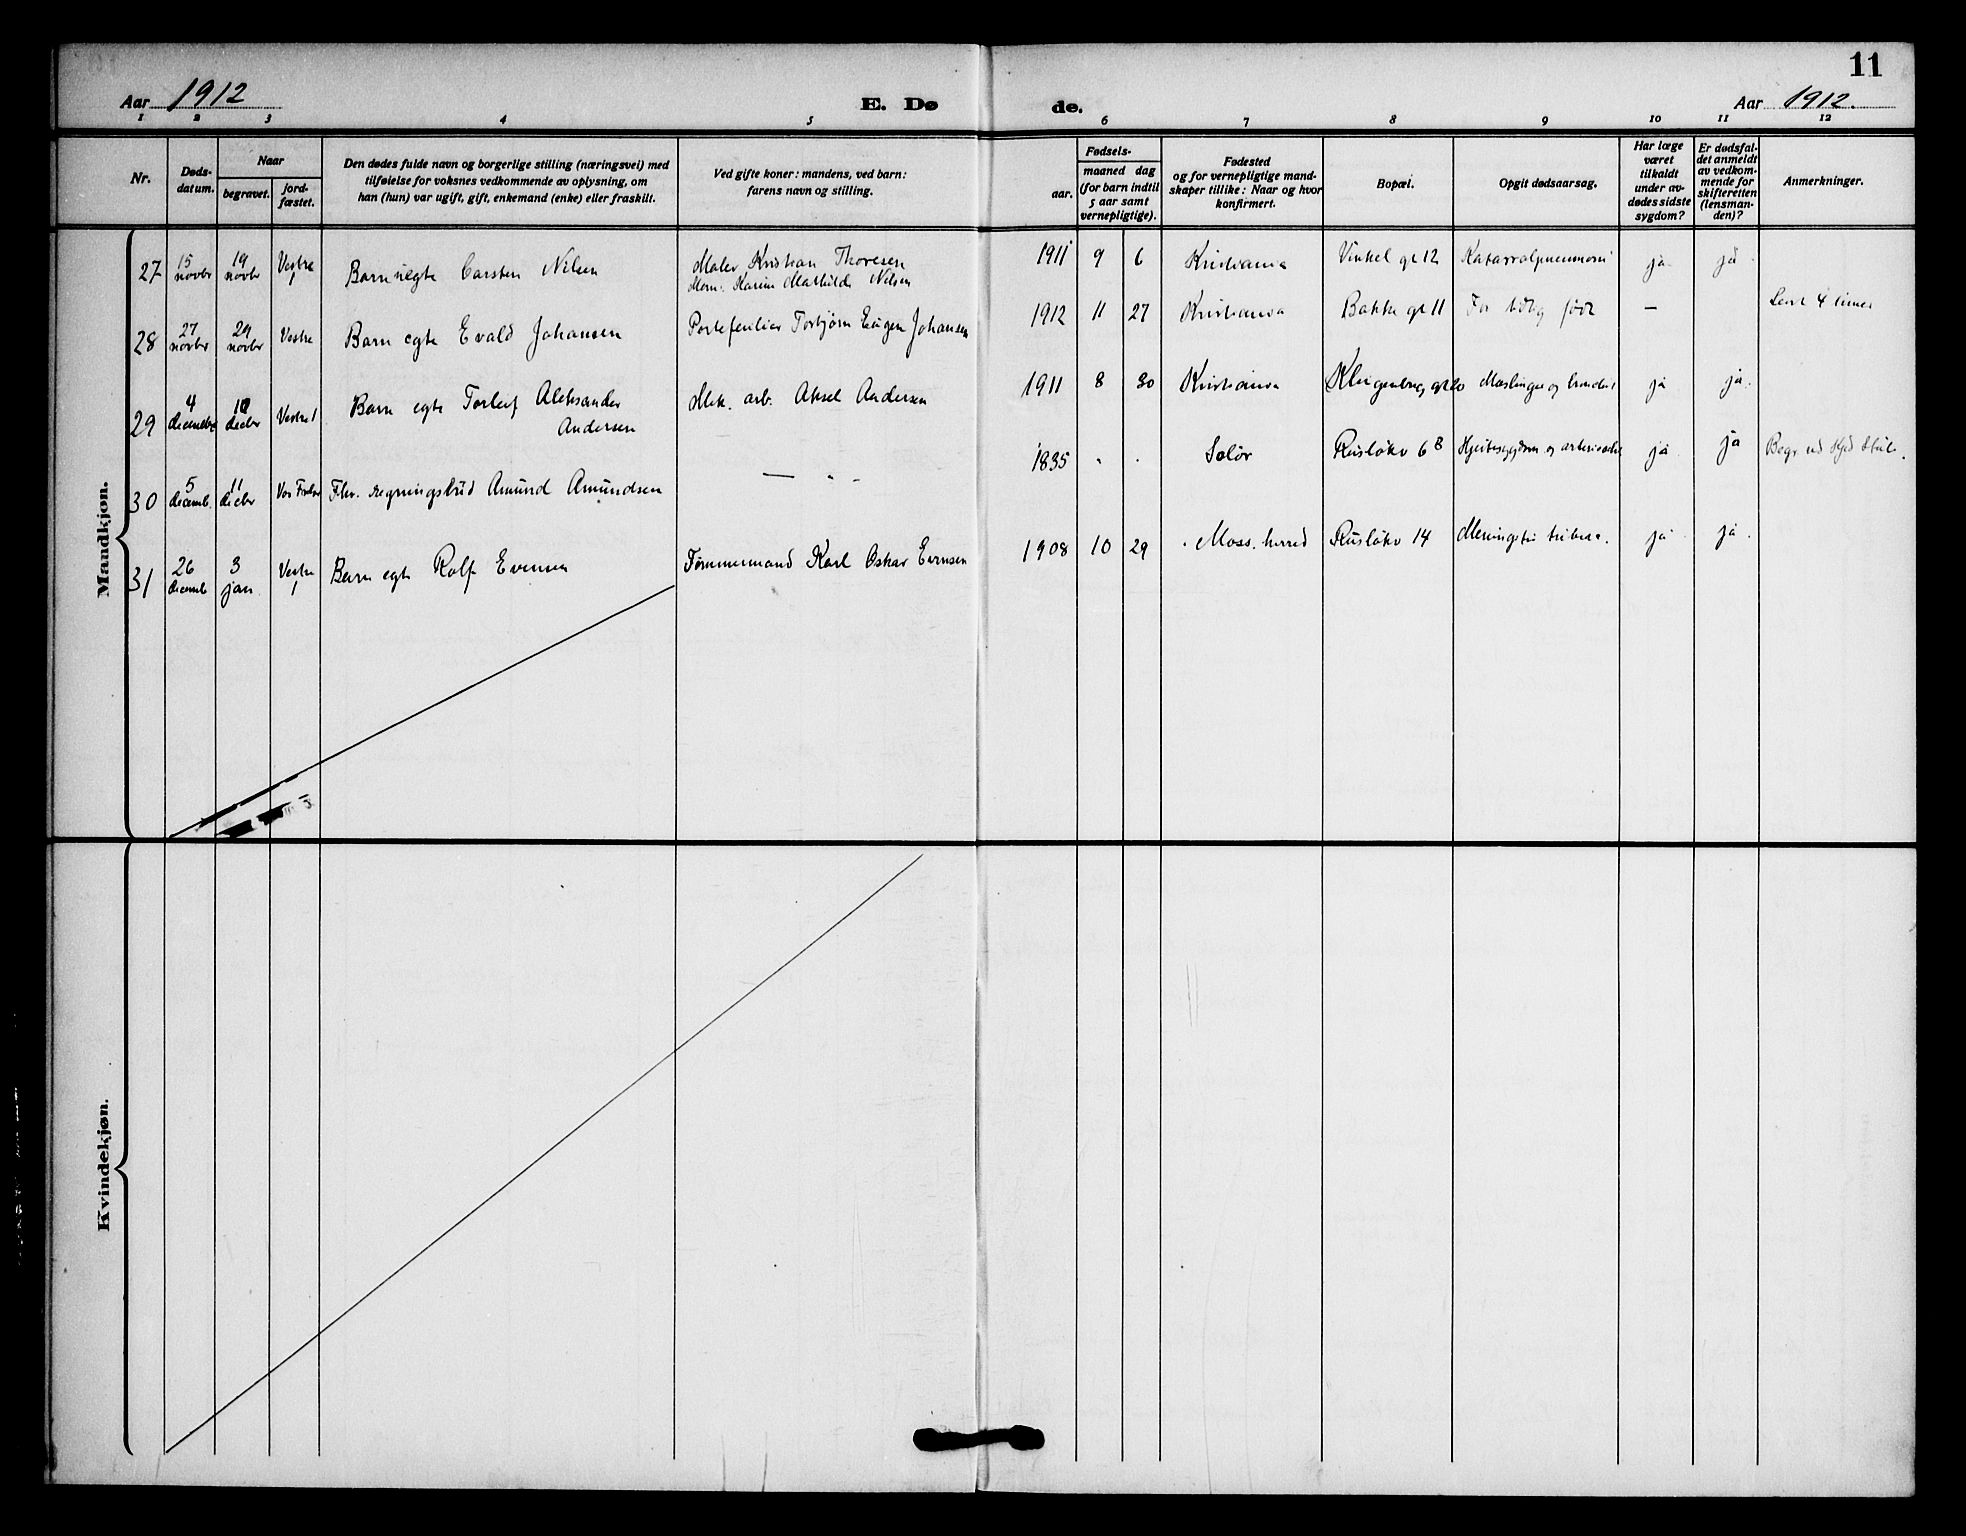 11
Aar 1912 E. Dø de. Aar 1912.
1 2 3 4 5 6 7 8 9 10 11 12
Nr.
Døds-
datum.
Naar
begravet.
jord-
fæstet.
Den dødes fulde navn og borgerlige stilling (næringsvei) med
tilføielse for voksnes vedkommende av oplysning, om
han (hun) var ugift, gift, enkemand (enke) eller fraskilt.
Ved gifte koner: mandens, ved barn:
farens navn og stilling.
Fødsels-
aar.
maaned dag
(for barn indtil
5 aar samt
vernepligtige).
Fødested
og for vernepligtige mand-
skaper tillike: Naar og hvor
konfirmert.
Bopæl.
Opgit dødsaarsag.
Har læge
været
tilkaldt
under av-
dødes sidste
sygdom?
Er dødsfal-
det anmeldt
av vedkom-
mende for
skifteretten
(lensman-
den)?
Anmerkninger.
Mandkjøn.
27 15 novbr 19 novbr Vestre Barn uegte Carsten Nilsen Maler Kristian Thoresen 1911 9 6 Kristiania Vinkel gt 12 Katarralpneumoni ja ja
Mor: Karen Mathilde Nilsen
28 27 novbr 29 novbr Vestre Barn egte Evald Johansen Portefeuiller Torbjørn Eugen Johansen 1912 11 27 Kristiania Bakke gt 11 For tidlig født — Levt 4 timer
29 4 decembr 10 decbr Vestre Barn egte Torleif Aleksander Mek. arb. Aksel Andersen 1911 8 30 Kristiania Klingenberg gt Meslinger og ja ja.
Andersen
30 5 decemb. 11 decbr Vor Frelser Fhv. regningsbud Amund Amundsen — " - 1835 . . Solør Rusløkv 68 Hjertesygdom og ja ja Begr ved
31 26 decemb 3 jan Vestre Barn egte Rolf Evensen Tømmermand Karl Oskar Evensen 1908 10 29 Moss. herred Rusløkv 14 Meningitis ja ja.
Kvindekjøn.